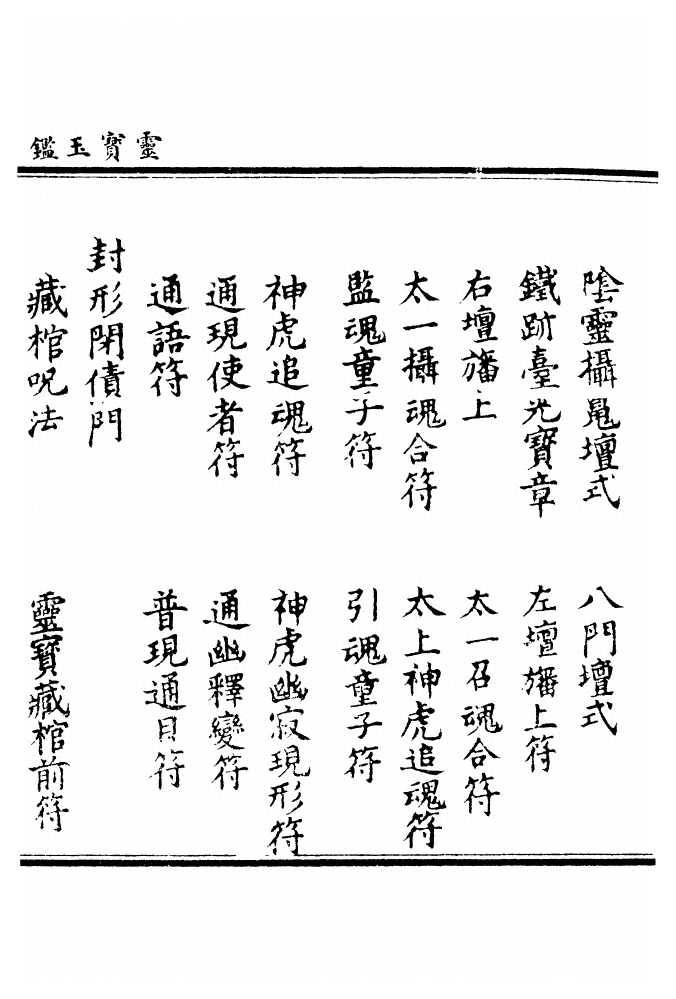 靈寶玉鑑
陰靈攝鬼壇式　八門壇式
鐵跡臺光寶章　左壇旛上符
右壇旛上　太一召魂合符
太一攝魂合符　太上神虎追魂符
監魂童子符　引魂童子符
神虎追魂符　神虎幽寂現形符
通現使者符　通幽釋變符
通語符　普現通目符
封形閉債門
藏棺呪法　靈寶藏棺前符